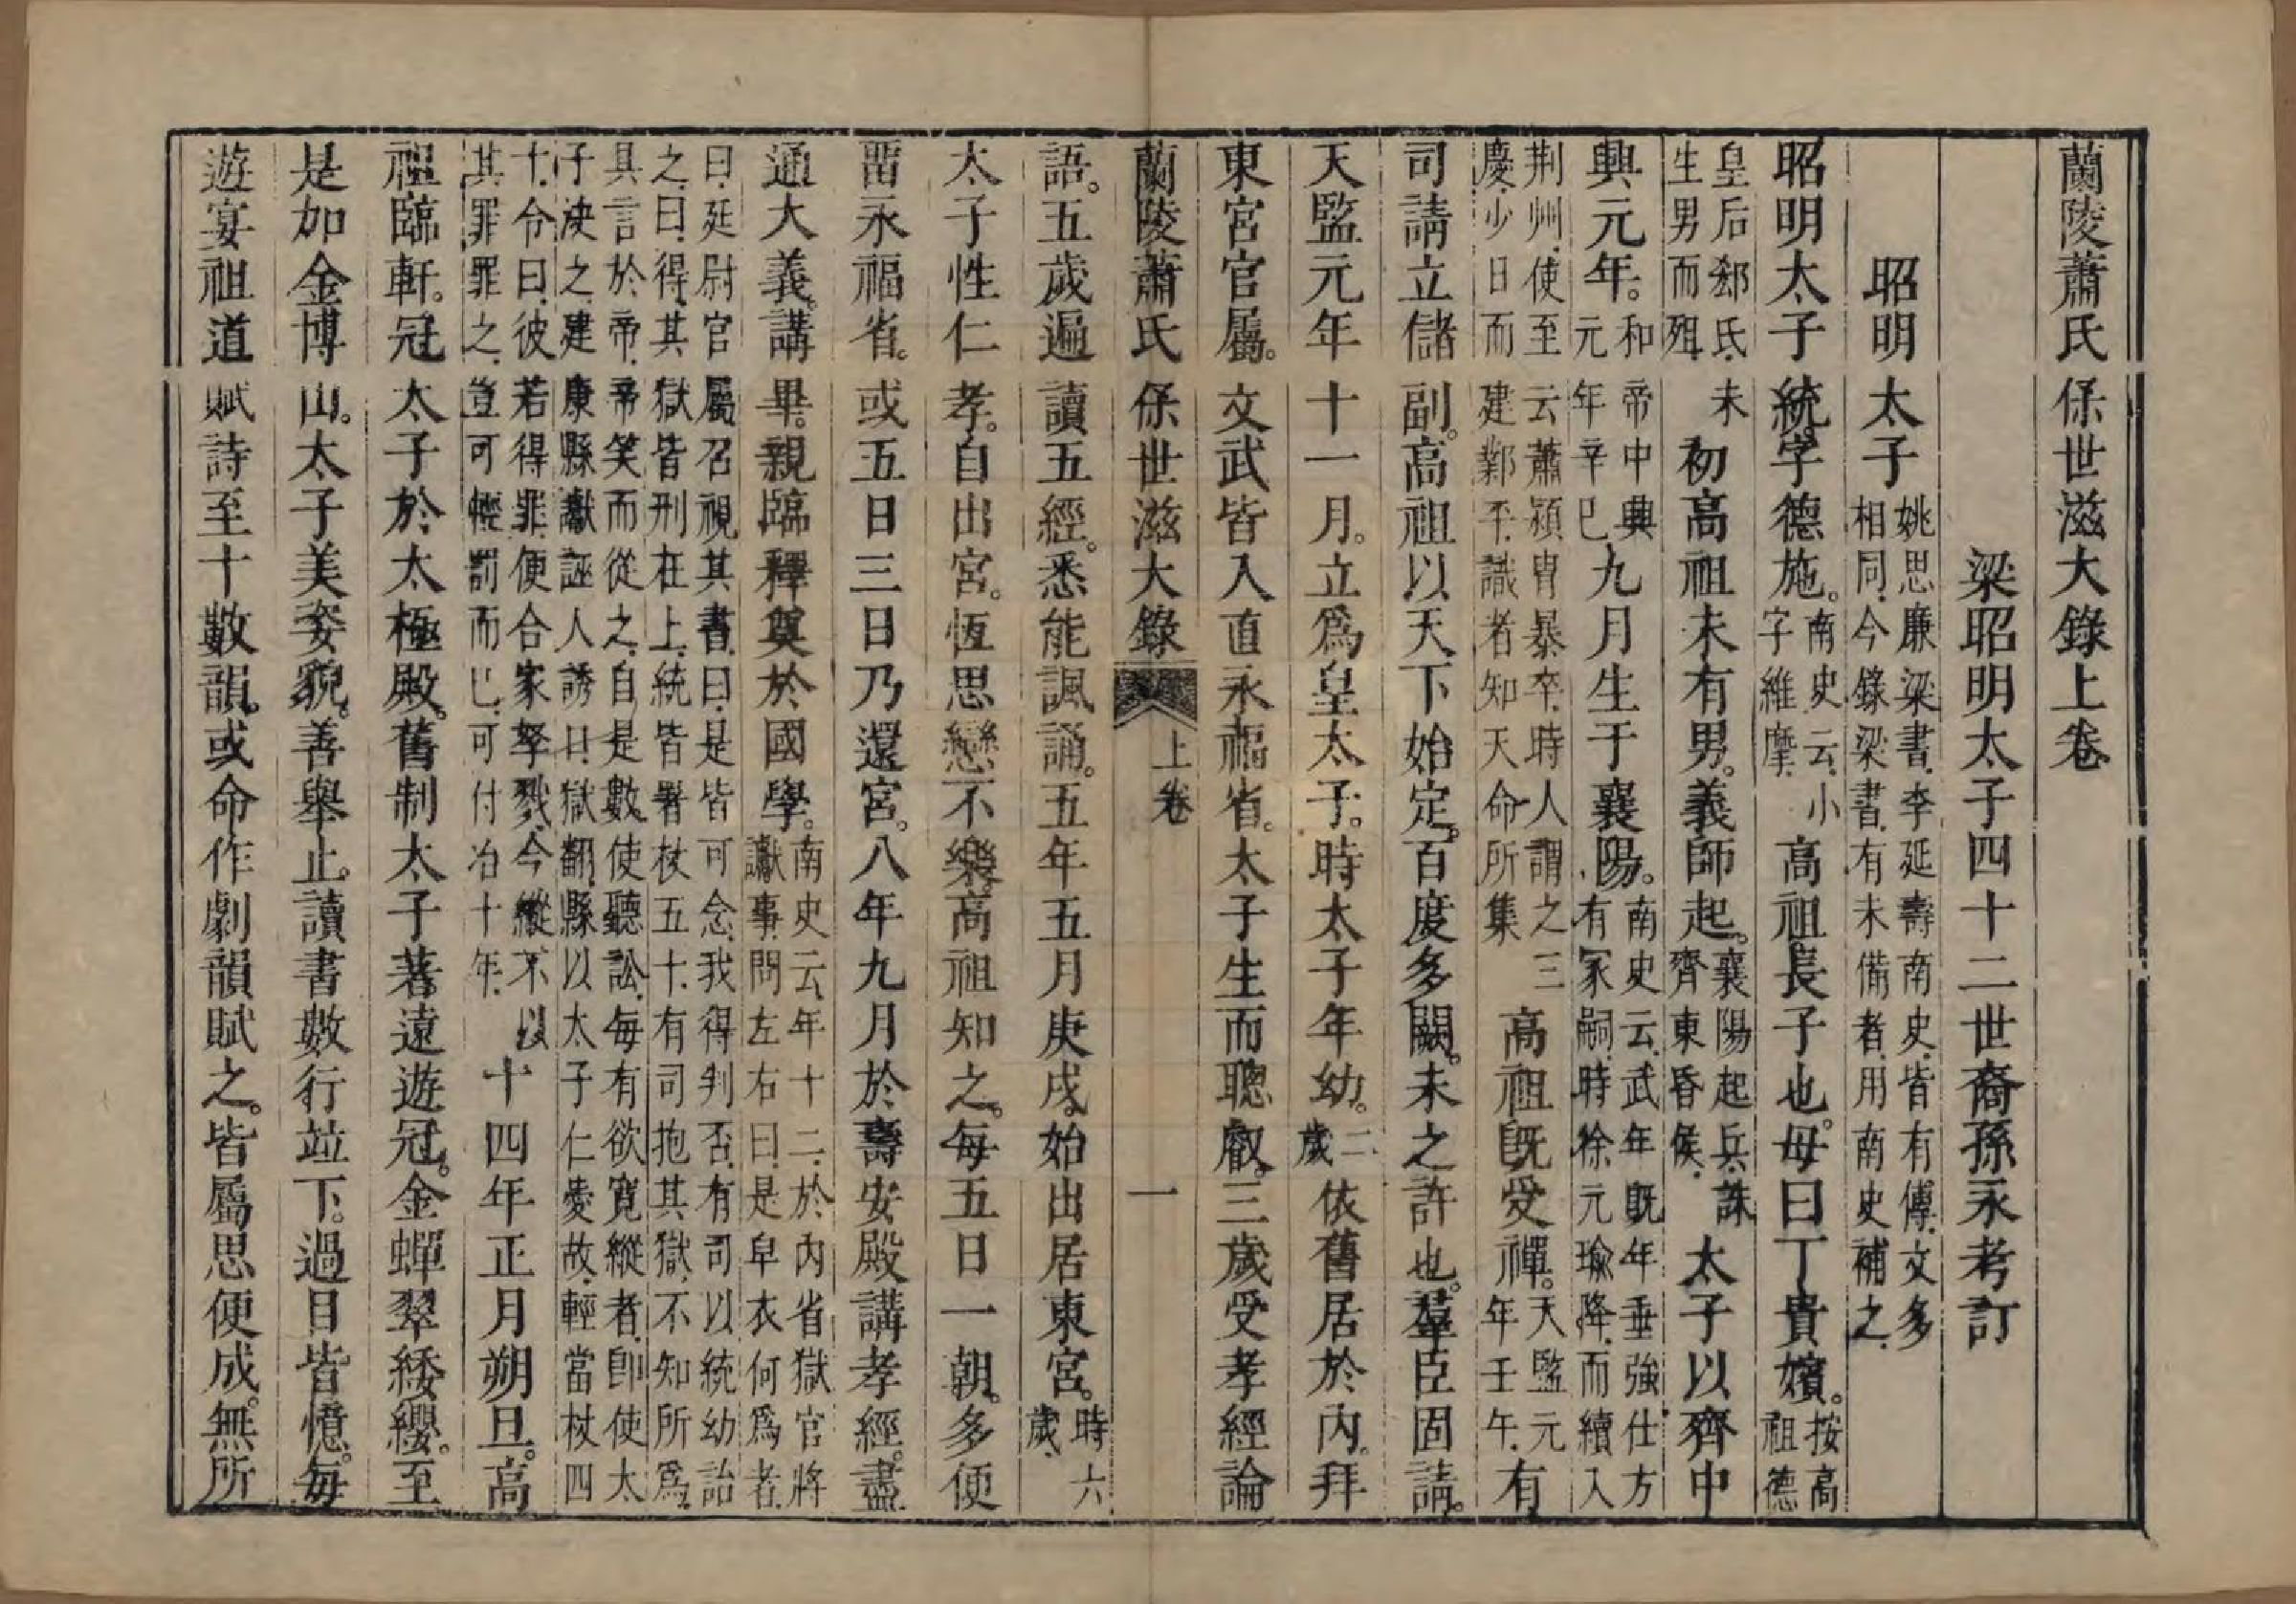 蘭陵蕭氏係世滋大錄上卷
梁昭明太子四十二世裔孫永考訂
昭明太子
姚思廉梁書李延壽南史皆有傳文多
相同今錄梁書有未備者用南史補之
昭明太子統字德施。
南史云小
字維摩
高祖長子也。母曰丁貴嬪。
按高
祖德
皇后郄氏未
生男而殂
初高祖未有男。義師起。
襄陽起兵誅
齊東昏侯
太子以齊中
興元年。
和帝中興
元年辛巳
九月生于襄陽。
南史云武年既年垂強仕方
有冢嗣時徐元瑜降而續入
荆州使至云蕭穎胄暴卒時人謂之三
慶少日而建鄴平識者知天命所集
高祖既受禪。
天監元
年壬午
有
司請立儲副。高祖以天下始定。百度多闕。未之許也。羣臣固請。
天監元年十一月。立爲皇太子。時太子年幼。
二
歲
依舊居於內。拜
東宮官屬。文武皆入直永福省。太子生而聰叡。三歲受孝經論
蘭陵蕭氏係世滋大錄 上卷 一
語。五歲遍讀五經。悉能諷誦。五年五月庚戌。始出居東宮。
時六
歲
太子性仁孝。自出宮。恆思戀不樂。高祖知之。每五日一朝。多便
畱永福省。或五日三日乃還宮。八年九月於壽安殿講孝經。盡
通大義。講畢。親臨釋奠於國學。
南史云年十二於內省獄官將
讞事問左右曰是皁衣何爲者
曰廷尉官屬召視其書曰是皆可念我得判否有司以統幼詒
之曰得其獄皆刑在上統皆署杖五十有司抱其獄不知所爲
具言於帝帝笑而從之自是數使聽訟每有欲寬縱者卽使太
子決之建康縣讞誣人誘口獄翻縣以太子仁愛故輕當杖四
十令曰彼若得罪便合家孥戮今縱不以
其罪罪之豈可輕罰而已可付冶十年
十四年正月朔旦。高
祖臨軒。冠太子於太極殿。舊制太子著遠遊冠。金蟬翠緌纓。至
是加金博山。太子美姿貌。善舉止。讀書數行竝下。過目皆憶。每
遊宴祖道賦詩至十數韻。或命作劇韻賦之。皆屬思便成。無所